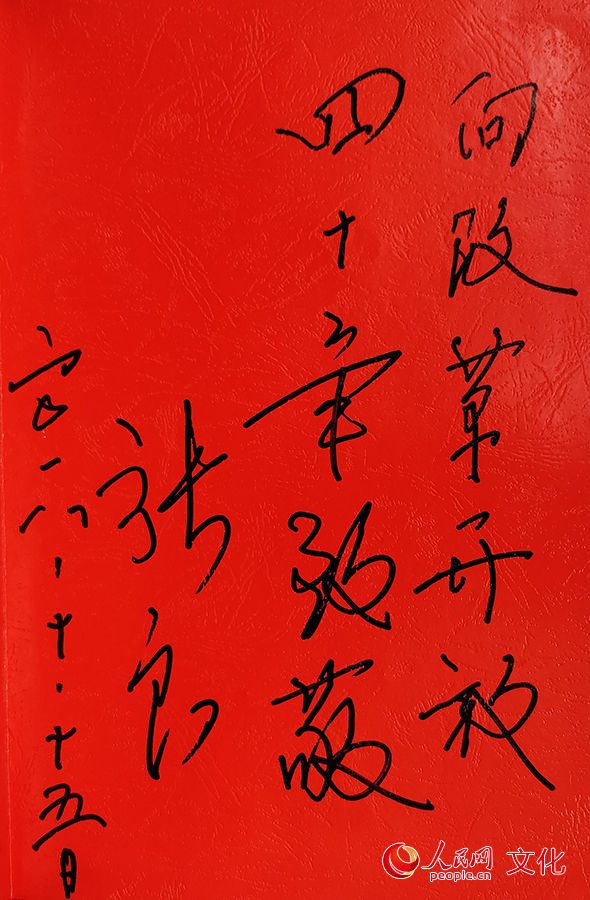 向改革开放
四十年致敬
张良
二〇一八·十·十五日
人民网 文化
people.cn